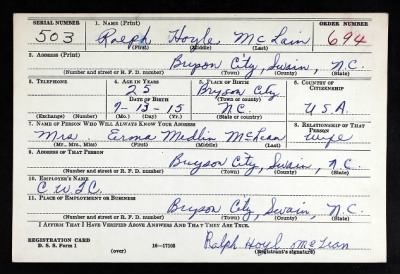 SERIAL NUMBER 1. NAME (Print) ORDER NUMBER
503 Ralph Hoyle McLain 694
(First) (Middle) (Last)
2. ADDRESS (Print)
Bryson City, Swain, N.C.
(Number and street or R. F. D. number) (Town) (County) (State)
3. TELEPHONE 4. AGE IN YEARS 5. PLACE OF BIRTH 6. COUNTRY OF CITIZENSHIP
25 Bryson City
DATE OF BIRTH (Town or county)
7-13-15 N.C. U.S.A.
(Exchange) (Number) (Mo.) (Day) (Yr.) (State or country)
7. NAME OF PERSON WHO WILL ALWAYS KNOW YOUR ADDRESS 8. RELATIONSHIP OF THAT PERSON
Mrs Erma Medlin McLean wife
(Mr., Mrs., Miss) (First) (Middle) (Last)
9. ADDRESS OF THAT PERSON
Bryson City, Swain, N.C.
(Number and street or R. F. D. number) (Town) (County) (State)
10. EMPLOYER'S NAME
11. PLACE OF EMPLOYMENT OR BUSINESS
Bryson City, Swain, N.C.
(Number and street or R. F. D. number) (Town) (County) (State)
I AFFIRM THAT I HAVE VERIFIED ABOVE ANSWERS AND THAT THEY ARE TRUE.
REGISTRATION CARD
D. S. S. Form 1 (over) 16-17105 Ralph Hoyl McLian
(Registrant's signature)